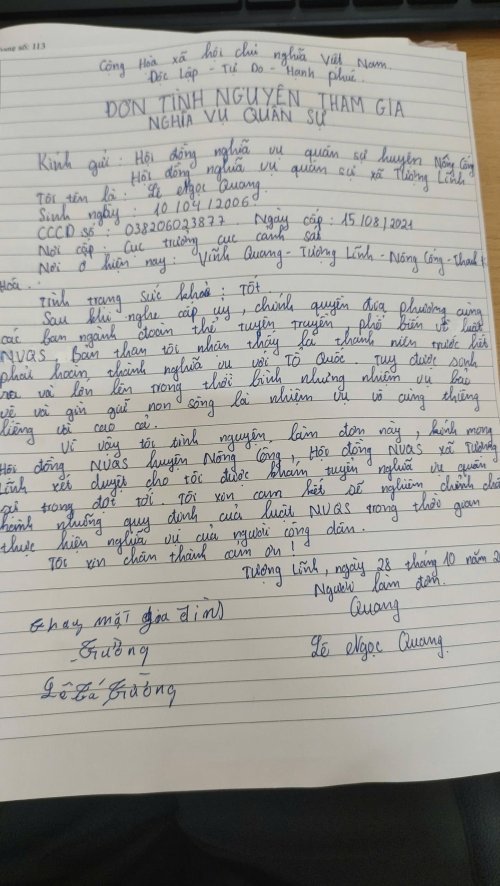 số: 113
Cộng Hòa xã hội chủ nghĩa Việt Nam
Độc Lập - Tự Do - Hạnh phúc.
ĐƠN TÌNH NGUYỆN THAM GIA
NGHĨA VỤ QUÂN SỰ
Kính gửi: Hội đồng nghĩa vụ quân sự huyện Nông Cống
Hội đồng nghĩa vụ quân sự xã Tượng Lĩnh
Tôi tên là: Lê Ngọc Quang.
Sinh ngày: 10/04/2006.
CCCD số: 038206023877. Ngày cấp: 15/08/2021
Nơi cấp: Cục trưởng cục cảnh sát
Nơi ở hiện nay: Vĩnh Quang - Tượng Lĩnh - Nông Cống - Thanh
Hoá.
Tình trạng sức khoẻ: Tốt.
Sau khi nghe cấp uỷ, chính quyền địa phương cùng
các ban ngành đoàn thể tuyên truyền phổ biến về luật
NVQS. Bản thân tôi nhận thấy là thanh niên trước hết
phải hoàn thành nghĩa vụ với Tổ Quốc. Tuy được sinh
ra và lớn lên trong thời bình nhưng nhiệm vụ bảo
vệ và gìn giữ non sông là nhiệm vụ vô cùng thiêng
liêng và cao cả.
Vì vậy tôi tình nguyện làm đơn này, kính mong
Hội đồng NVQS huyện Nông Cống, Hội đồng NVQS xã Tượng
Lĩnh xét duyệt cho tôi được khám tuyển nghĩa vụ quân
sự trong đợt tới. Tôi xin cam kết sẽ nghiêm chỉnh chấp
hành những quy định của luật NVQS trong thời gian
thực hiện nghĩa vụ của người công dân.
Tôi xin chân thành cảm ơn!
Tượng Lĩnh, ngày 28 tháng 10 năm
Người làm đơn.
Quang
Lê Ngọc Quang.
thay mặt gia đình
Trường
Lê Bá Trường